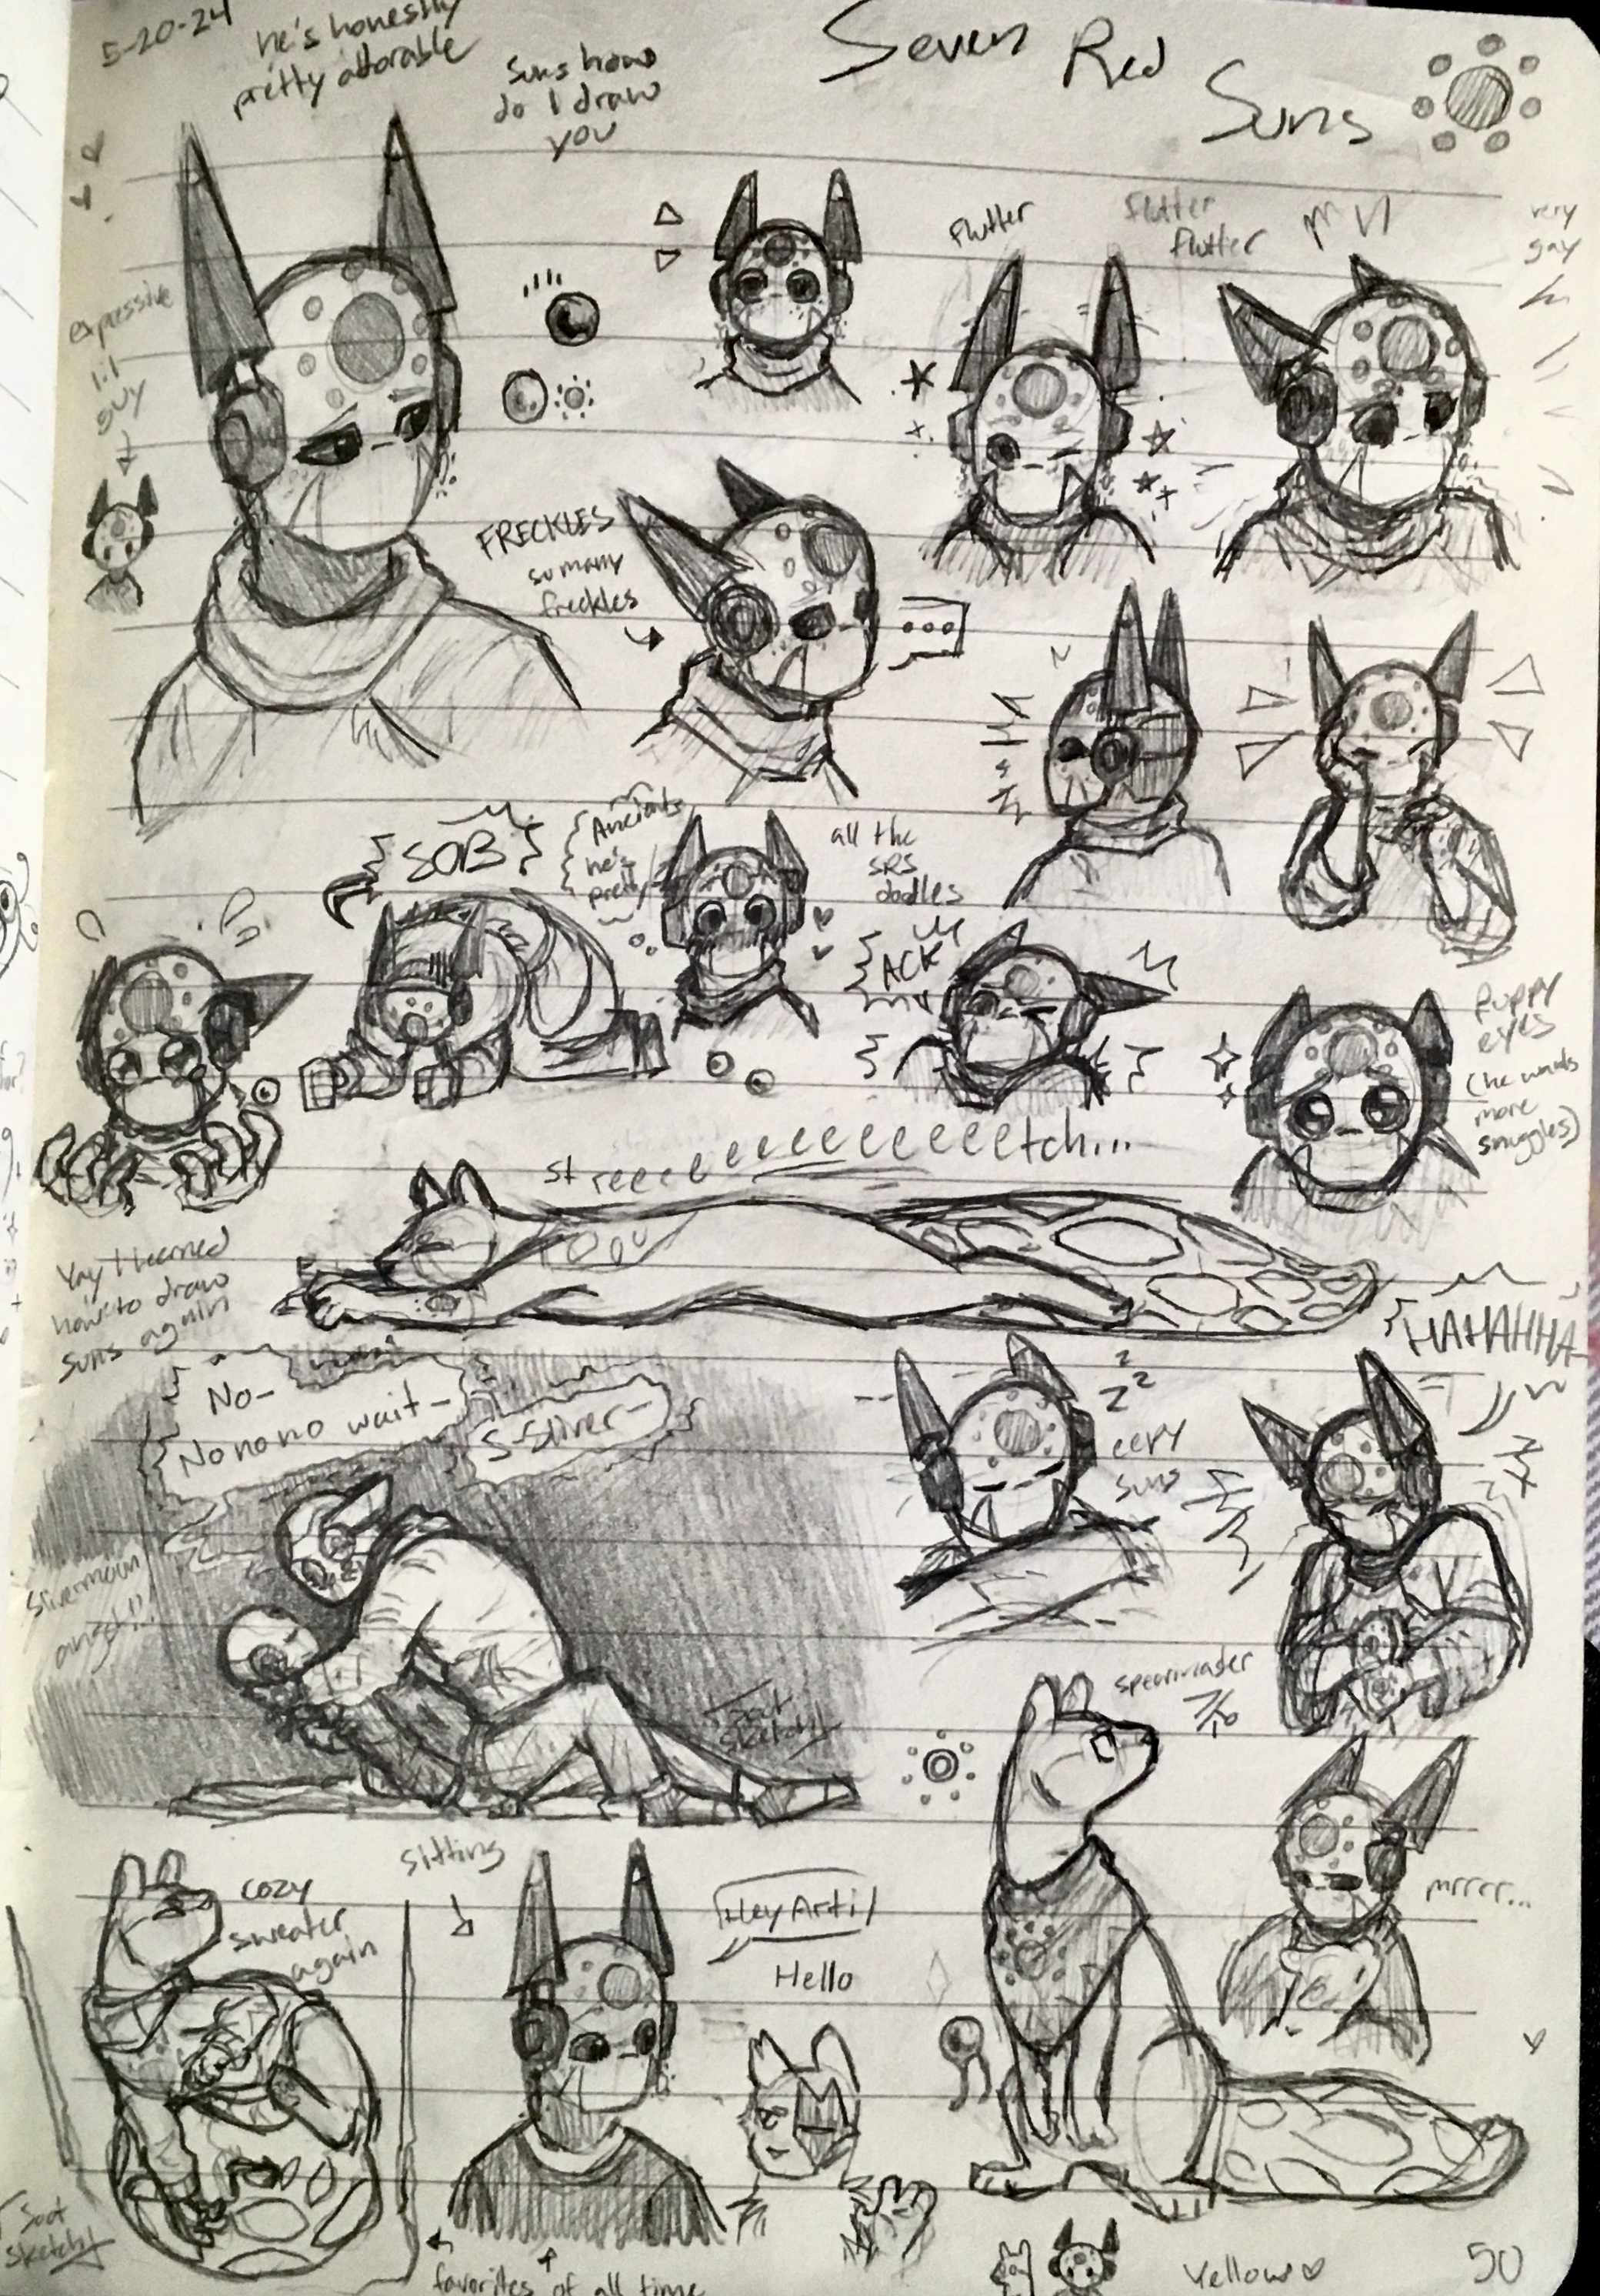 5-20-24
he's honestly
pretty adorable
Suns how
do I draw
you
Seven Red
Suns
expressive
lil
guy
flutter
flutter
flutter
very
gay
FRECKLES
so many
freckles
...
SOB
Ancients
he's
pretty
all the
SRS
doodles
ACK
Puppy
eyes
(he wants
more
snuggles)
streeeeeeeeeeeeetch...
Yay I learned
how to draw
suns again
HAHAHHA-
No-
Nonono wait-
S-Sliver-
z
z z
eepy
suns
Slivermoun
angst!!
Soot
sketchy
spearmaster
mrrrr...
cozy
sweater
again
sitting
Hey Arti!
Hello
Soot
sketchy
favorites of all time
Yellow
50